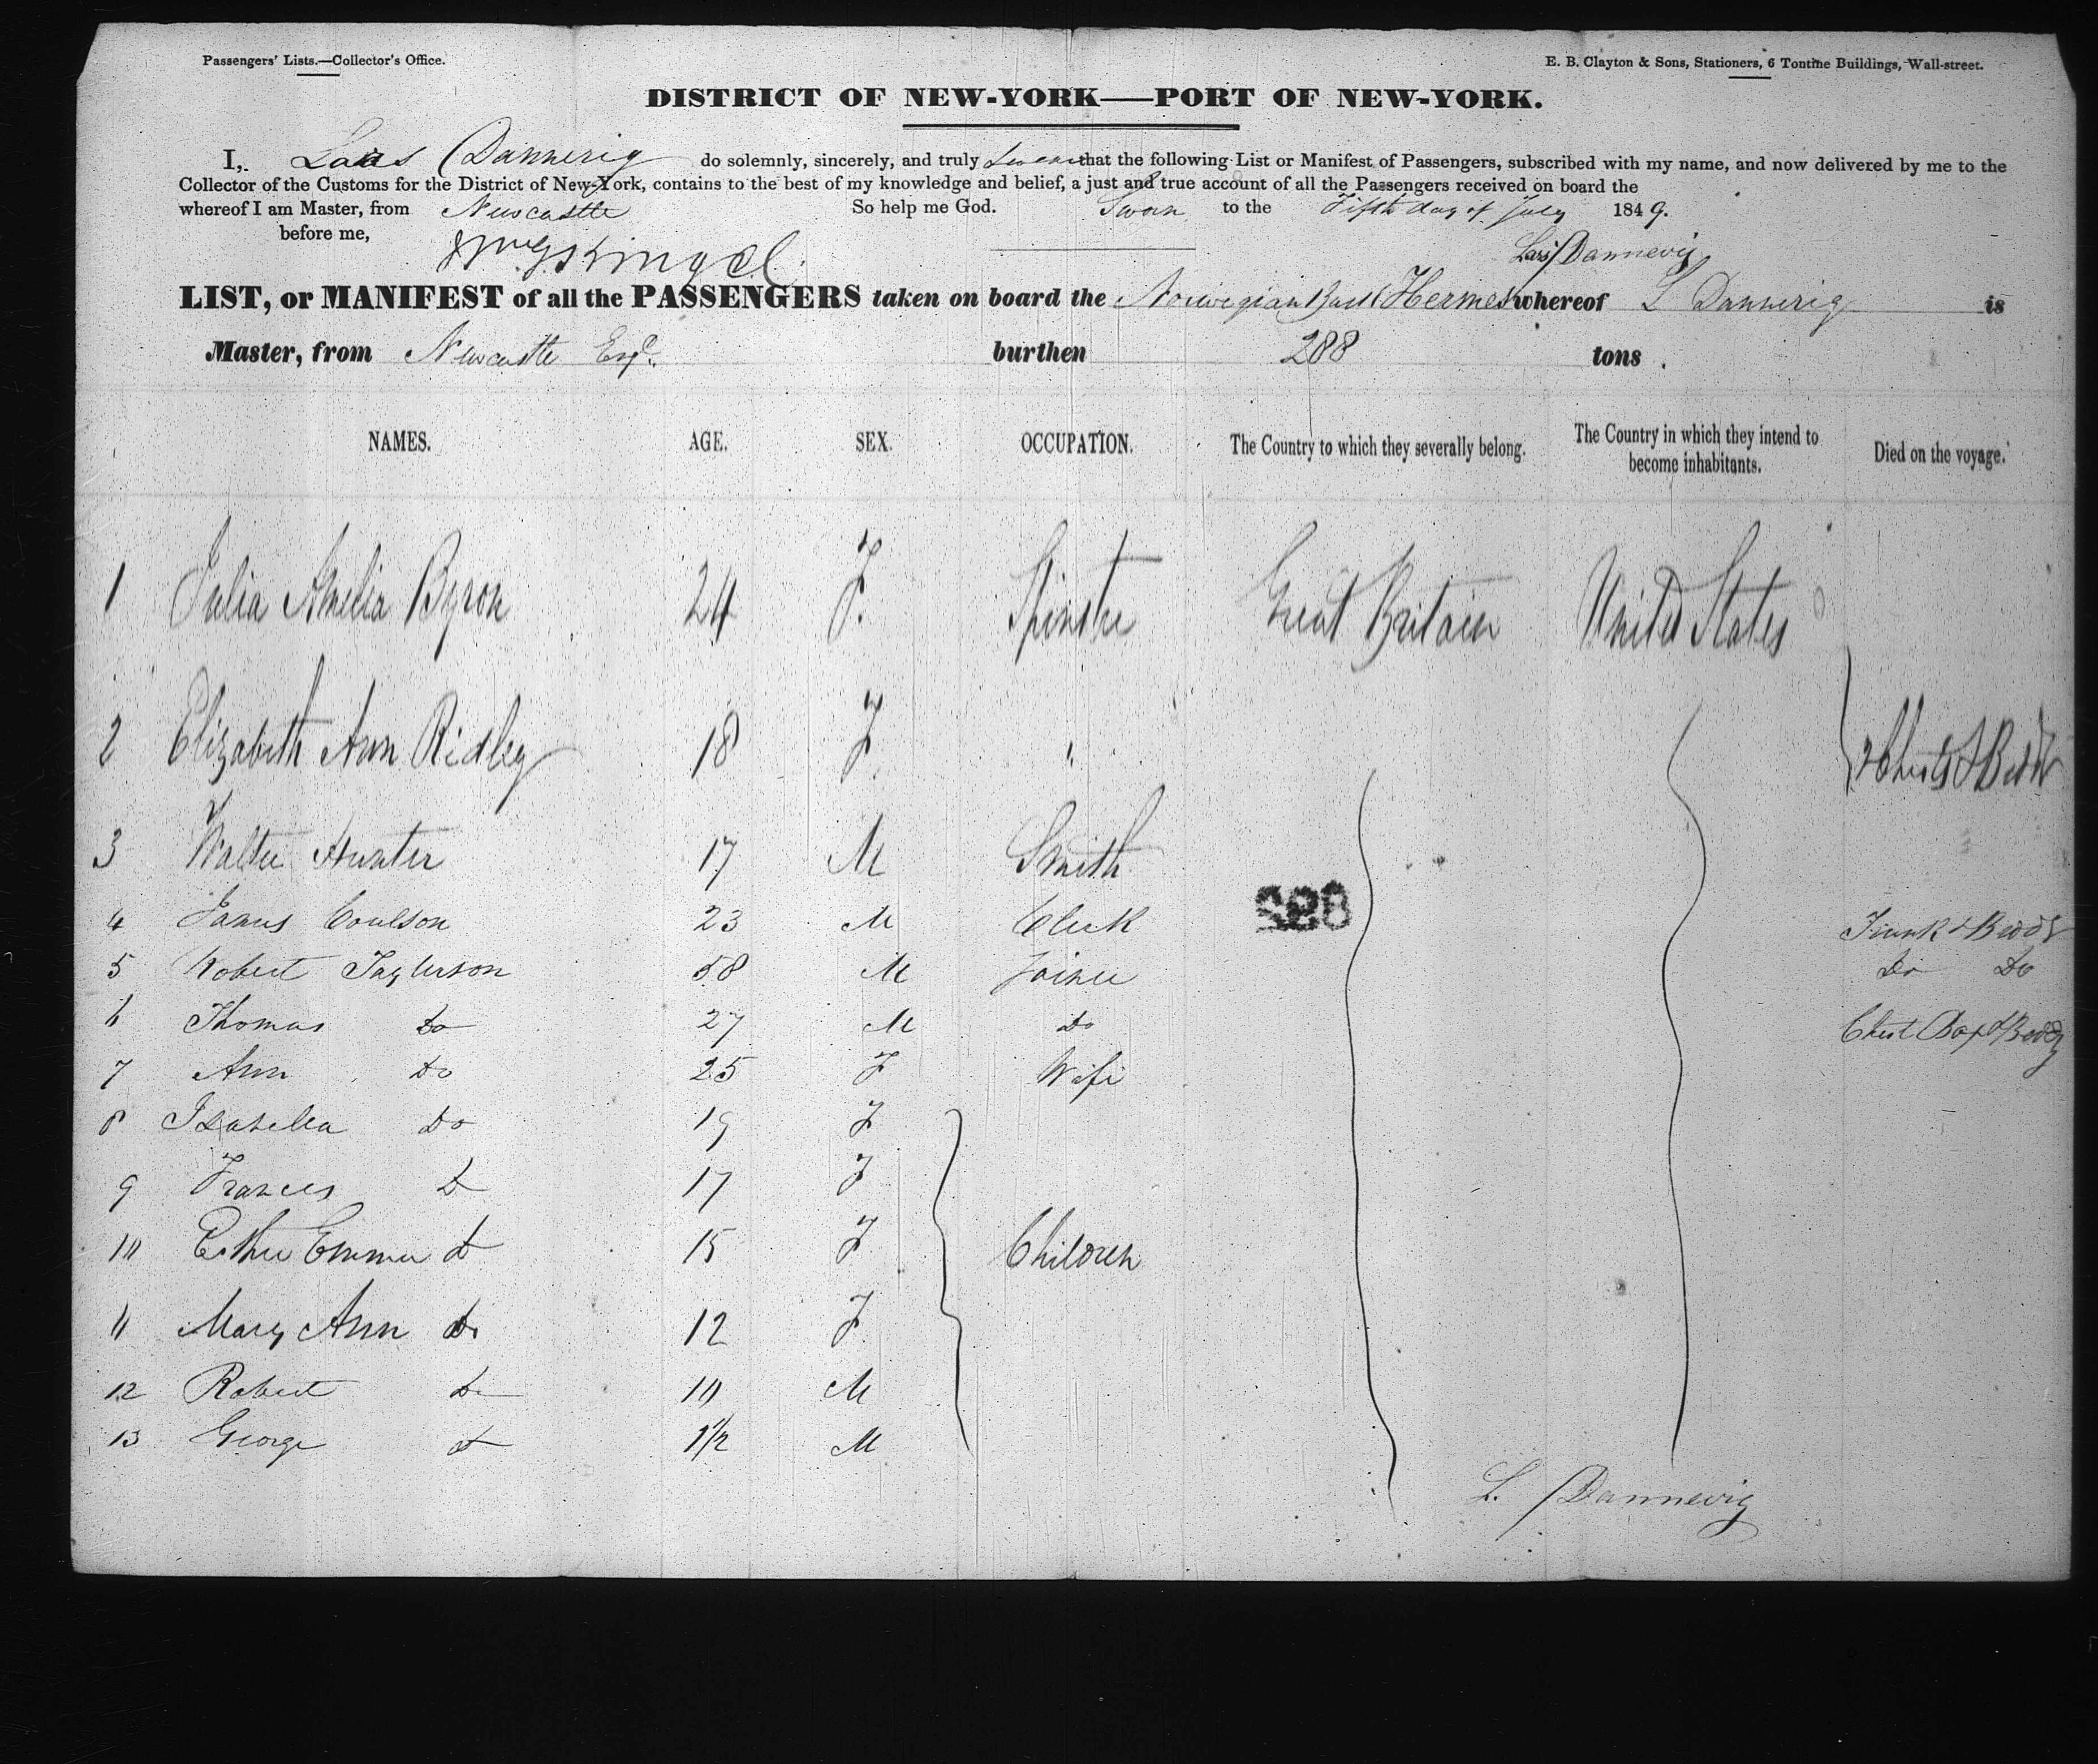 Passengers' Lists.—Collector's Office.
E. B. Clayton & Sons, Stationers, 6 Tontine Buildings, Wall-street.
DISTRICT OF NEW-YORK—PORT OF NEW-YORK.
I, Lars Dannevig do solemnly, sincerely, and truly swear that the following List or Manifest of Passengers, subscribed with my name, and now delivered by me to the
Collector of the Customs for the District of New-York, contains to the best of my knowledge and belief, a just and true account of all the Passengers received on board the
whereof I am Master, from Newcastle So help me God. Sworn to the Fifth day of July 1849.
before me,
Lars Dannevig
LIST, or MANIFEST of all the PASSENGERS taken on board the Norwegian Bark Hermes whereof L Dannevig is
Master, from Newcastle Engd. burthen 288 tons .
NAMES. AGE. SEX. OCCUPATION. The Country to which they severally belong. The Country in which they intend to become inhabitants. Died on the voyage.
1 Julia Amelia Byron 24 F. Spinster Great Britain United States
2 Elizabeth Ann Ridley 18 F. " 2 Chests & Bedd
3 Walter Hunter 17 M Smith
4 James Coulson 23 M Clerk Trunk & Bedd
5 Robert Taylerson 58 M Joiner Do Do
6 Thomas Do 27 M Do Chest Box & Bedd
7 Ann Do 25 F Wife
8 Isabella Do 19 F
9 Frances D 17 F
10 Esther Emma D 15 F Children
11 Mary Ann Do 12 F
12 Robert Do 10 M
13 George D 1 1/2 M
L. Dannevig